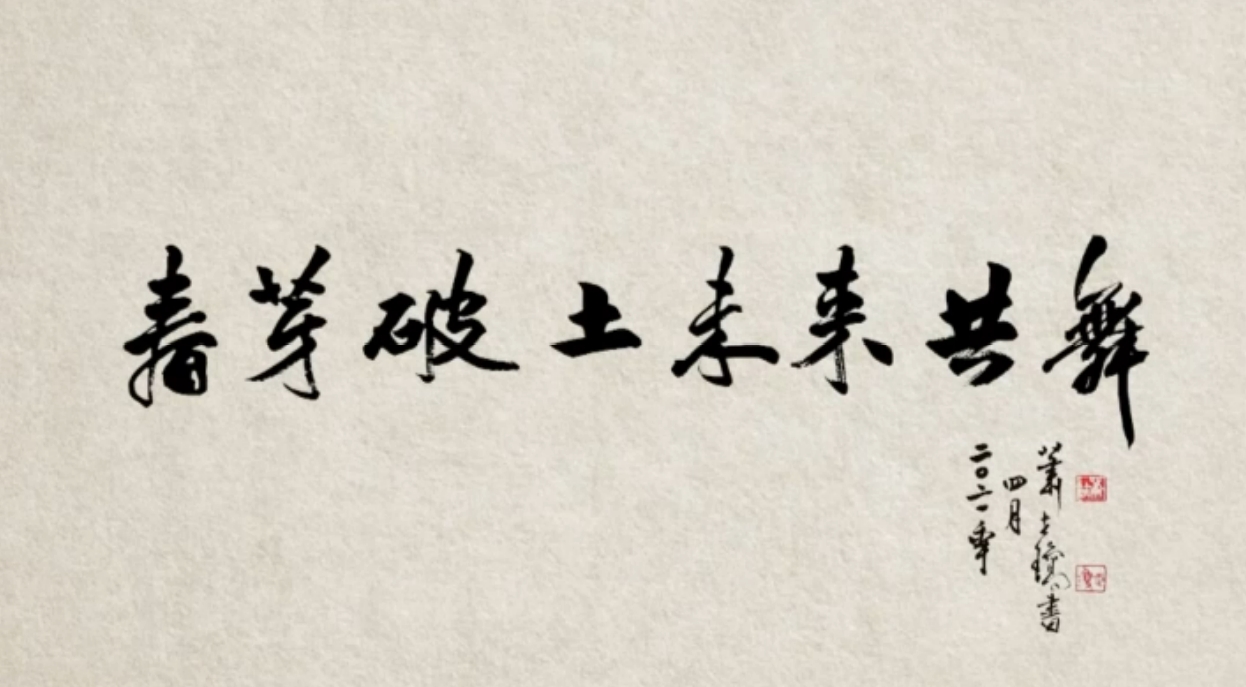 春芽破土未来共舞
二〇二一年
四月
蕭士書